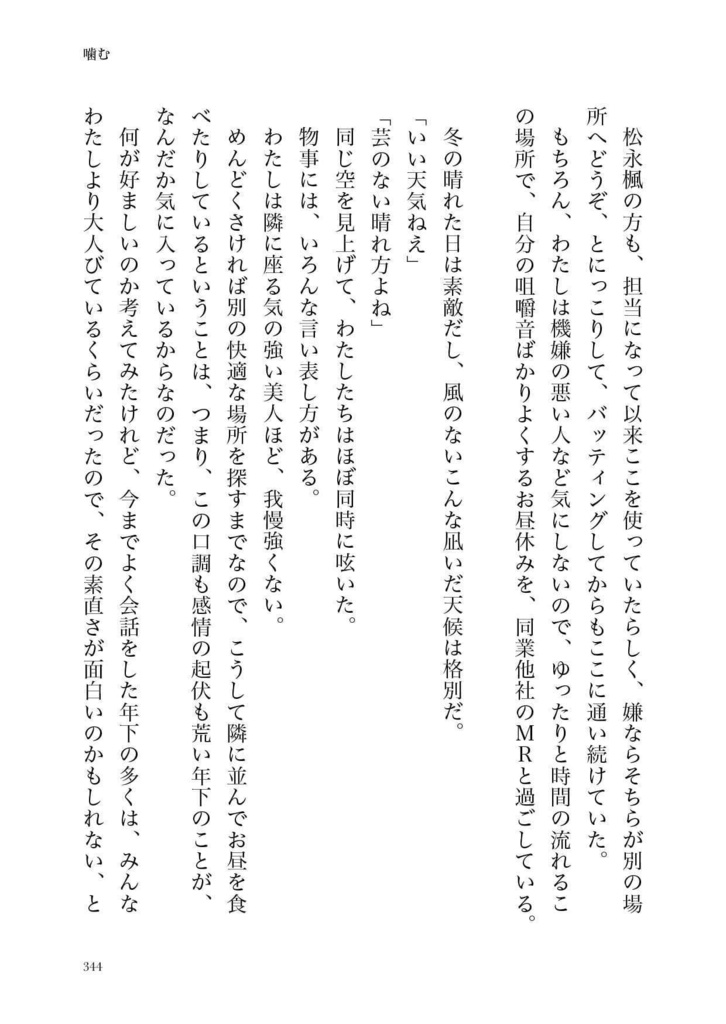 噛む
　松永楓の方も、担当になって以来ここを使っていたらしく、嫌ならそちらが別の場
所へどうぞ、とにっこりして、バッティングしてからもここに通い続けていた。
　もちろん、わたしは機嫌の悪い人など気にしないので、ゆったりと時間の流れるこ
の場所で、自分の咀嚼音ばかりよくするお昼休みを、同業他社のＭＲと過ごしている。
　冬の晴れた日は素敵だし、風のないこんな凪いだ天候は格別だ。
「いい天気ねえ」
「芸のない晴れ方よね」
　同じ空を見上げて、わたしたちはほぼ同時に呟いた。
　物事には、いろんな言い表し方がある。
　わたしは隣に座る気の強い美人ほど、我慢強くない。
　めんどくさければ別の快適な場所を探すまでなので、こうして隣に並んでお昼を食
べたりしているということは、つまり、この口調も感情の起伏も荒い年下のことが、
なんだか気に入っているからなのだった。
　何が好ましいのか考えてみたけれど、今までよく会話をした年下の多くは、みんな
わたしより大人びているくらいだったので、その素直さが面白いのかもしれない、と
344